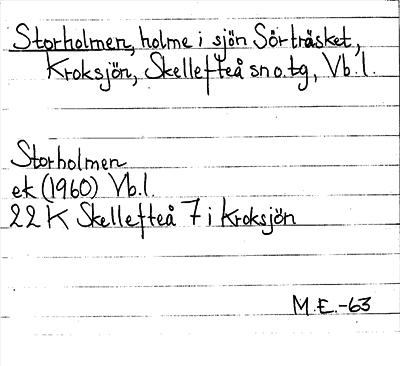 Storholmen, holme i sjön Sörträsket,
Kroksjön, Skellefteå sn o. tg, Vb. l.
Storholmen
ek (1960) Vb. l.
22 K Skellefteå 7 i Kroksjön
M.E.-63